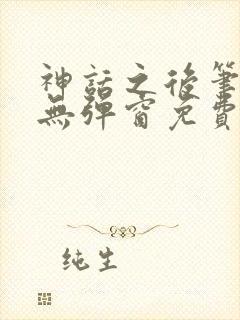 神話之後筆
無彈窗免費
纯生